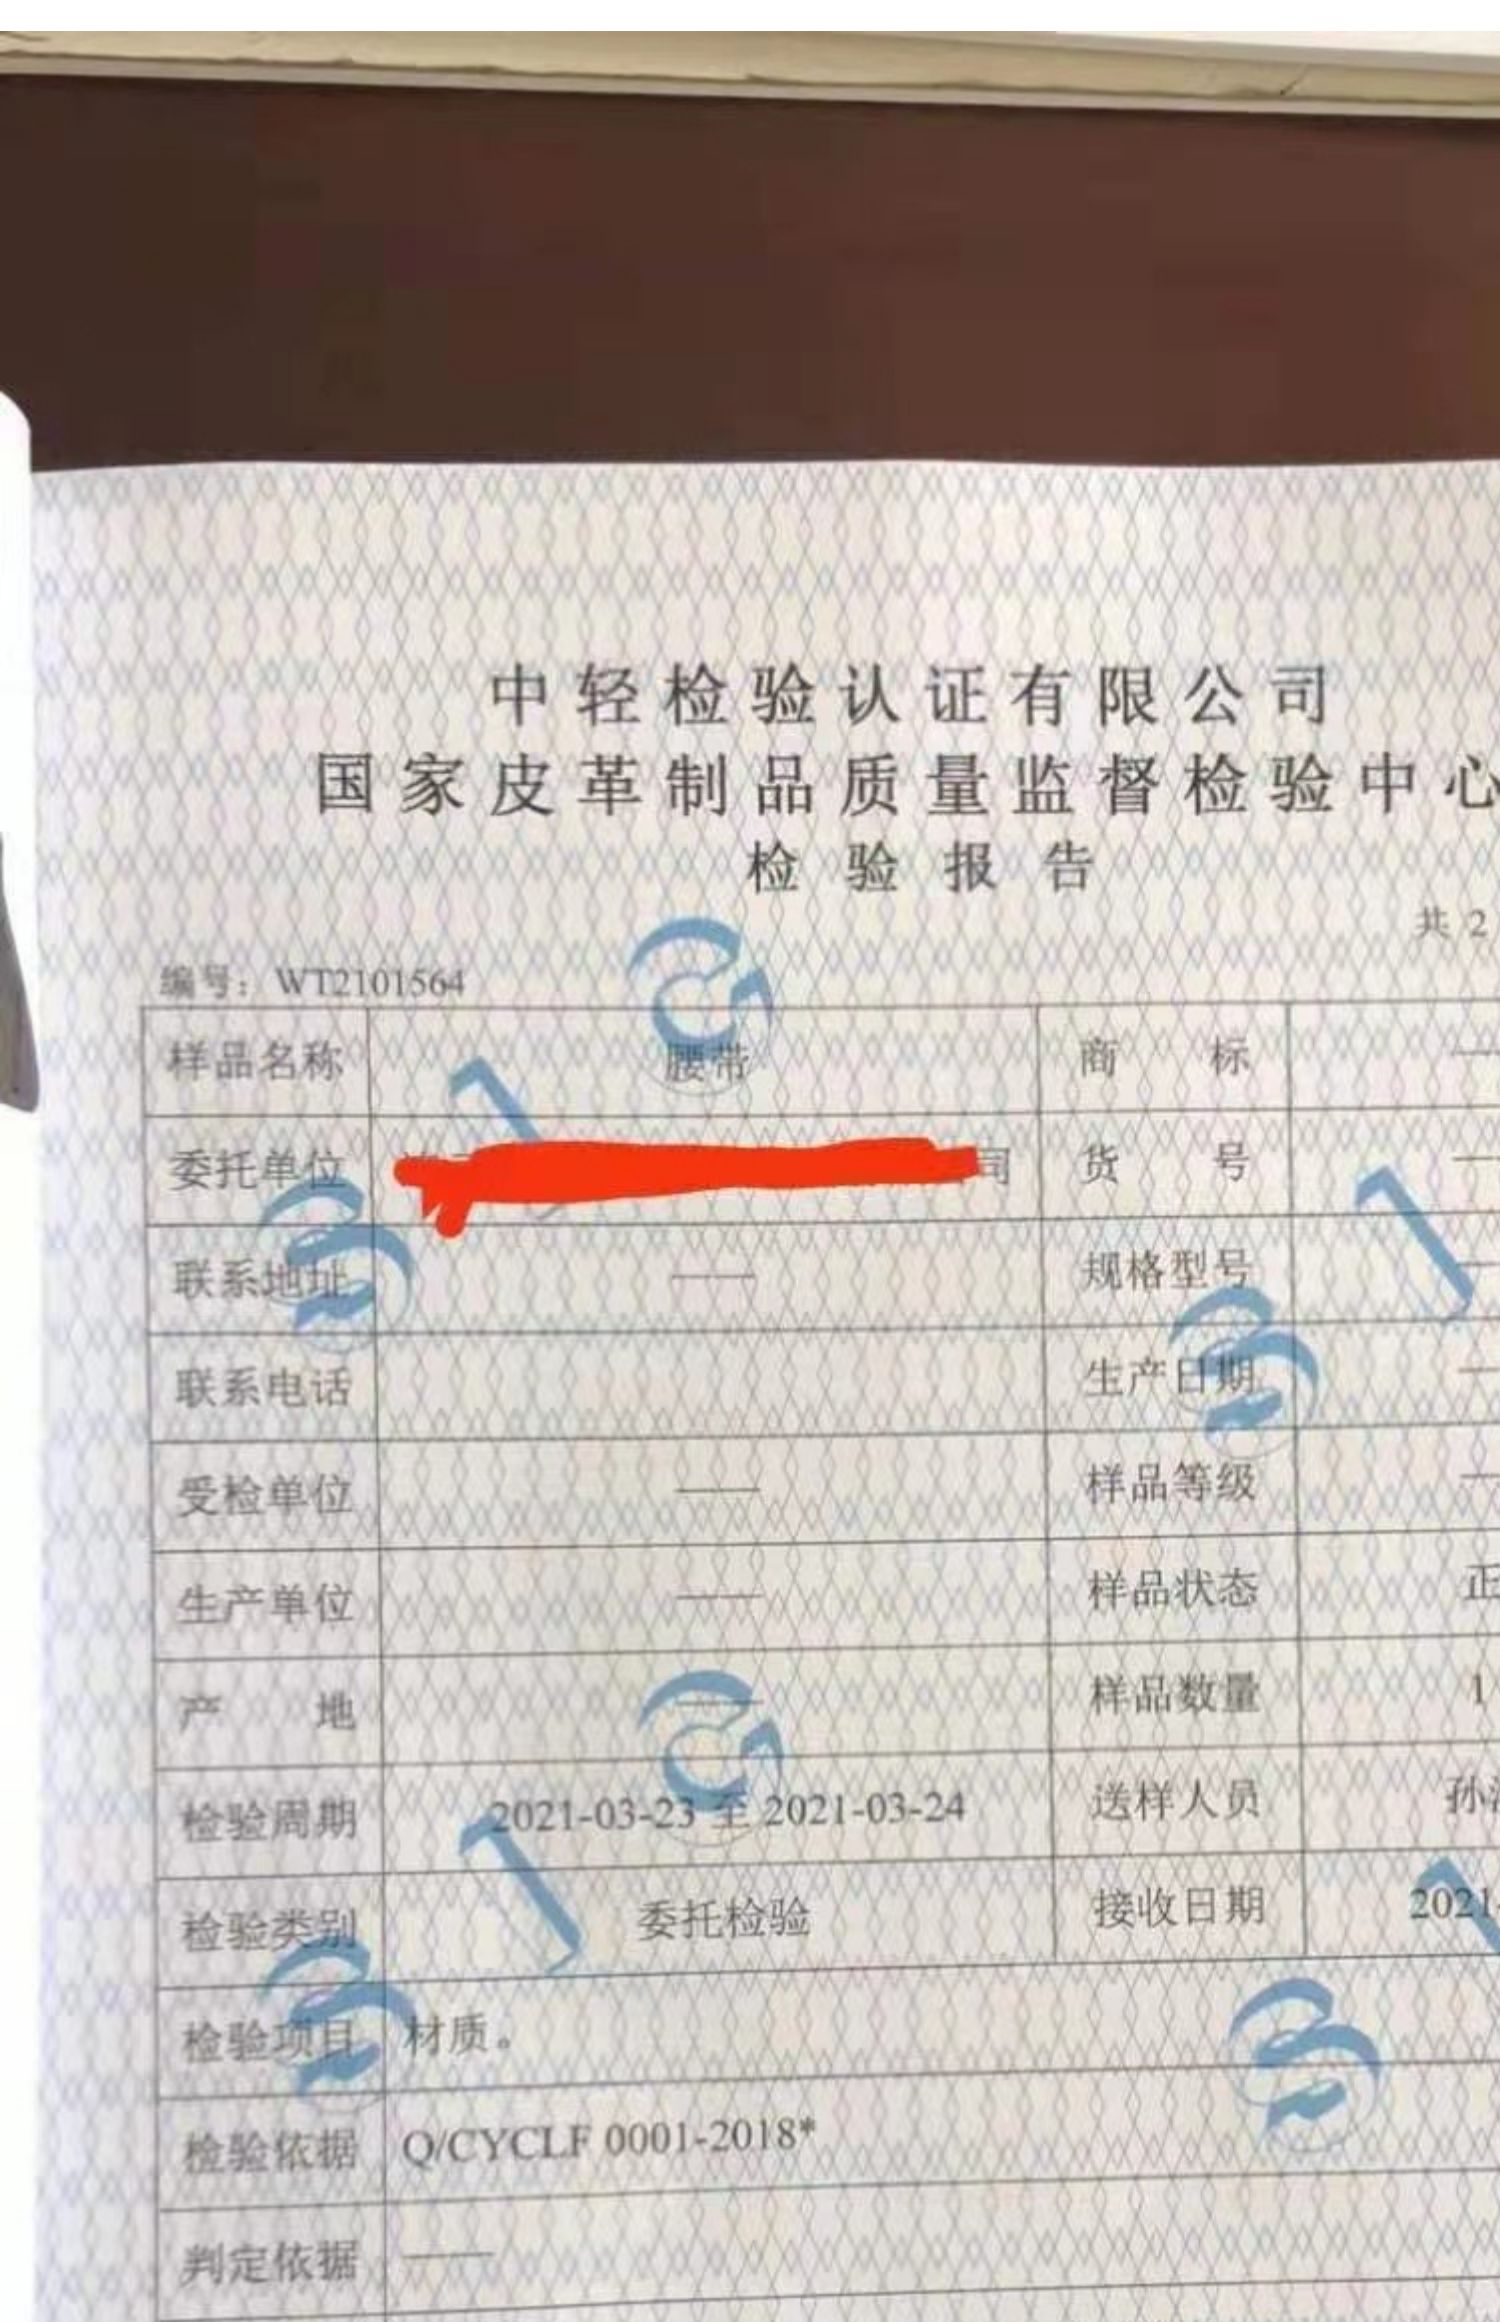 中轻检验认证有限公司
国家皮革制品质量监督检验中心
检验报告
共 2
编号： WT2101564
样品名称 腰带 商标 —
委托单位 司 货号 —
联系地址 —— 规格型号 —
联系电话 生产日期 —
受检单位 —— 样品等级 —
生产单位 —— 样品状态 正
产地 —— 样品数量 1
检验周期 2021-03-23 至 2021-03-24 送样人员 孙
检验类别 委托检验 接收日期 2021-
检验项目 材质。
检验依据 Q/CYCLF 0001-2018*
判定依据 ——